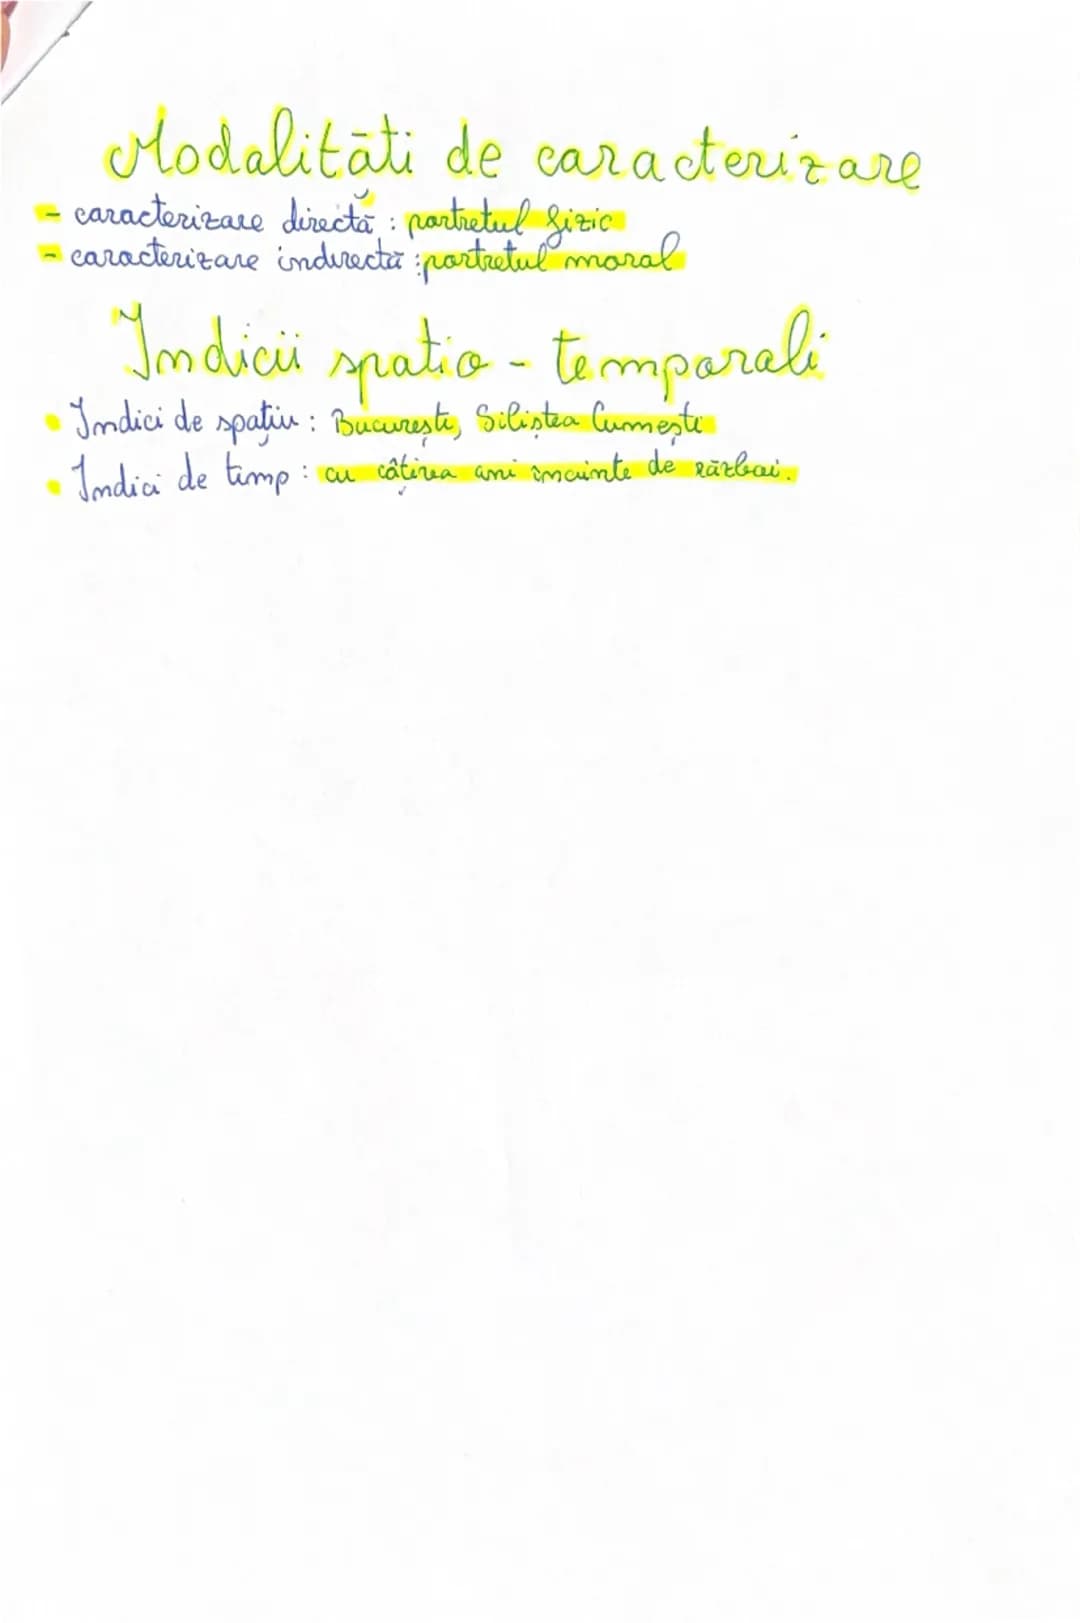 Modalităti de caracterizare
- caracterizare directă : portretul fizic
- caracterizare indirectă : portretul moral
Indicii spatio - temporali
• Indici de spațiu : București, Siliștea Cumești
• Indici de timp : cu câțiva ani înainte de război.